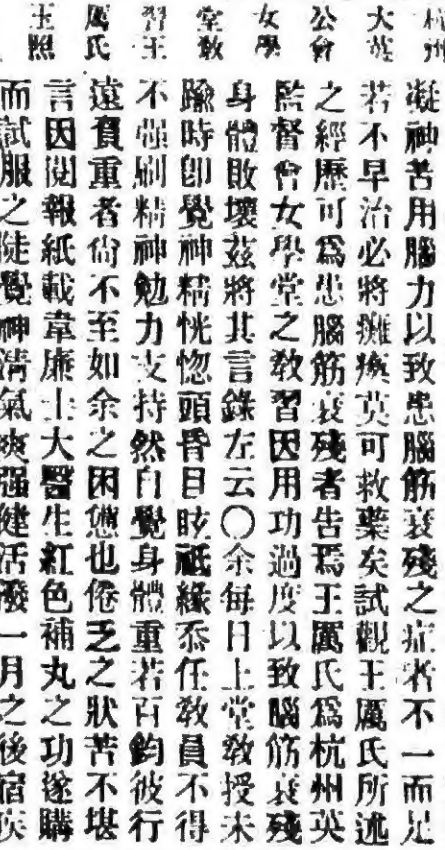 杭州
大英
公會
女學
堂教
習王
厲氏
玉照
凝神苦用腦力以致患腦筋衰殘之症者不一而足
若不早治必將癱瘓莫可救藥矣試觀王厲氏所述
之經歷可爲患腦筋衰殘者告焉王厲氏爲杭州英
監督會女學堂之教習因用功過度以致腦筋衰殘
身體敗壞茲將其言錄左云〇余每日上堂教授未
踰時卽覺神精恍惚頭昏目眩祗緣忝任教員不得
不强刷精神勉力支持然自覺身體重若百鈞彼行
遠負重者尙不至如余之困憊也倦乏之狀苦不堪
言因閱報紙載韋廉士大醫生紅色補丸之功遂購
而試服之陡覺神清氣爽强健活潑一月之後宿疾